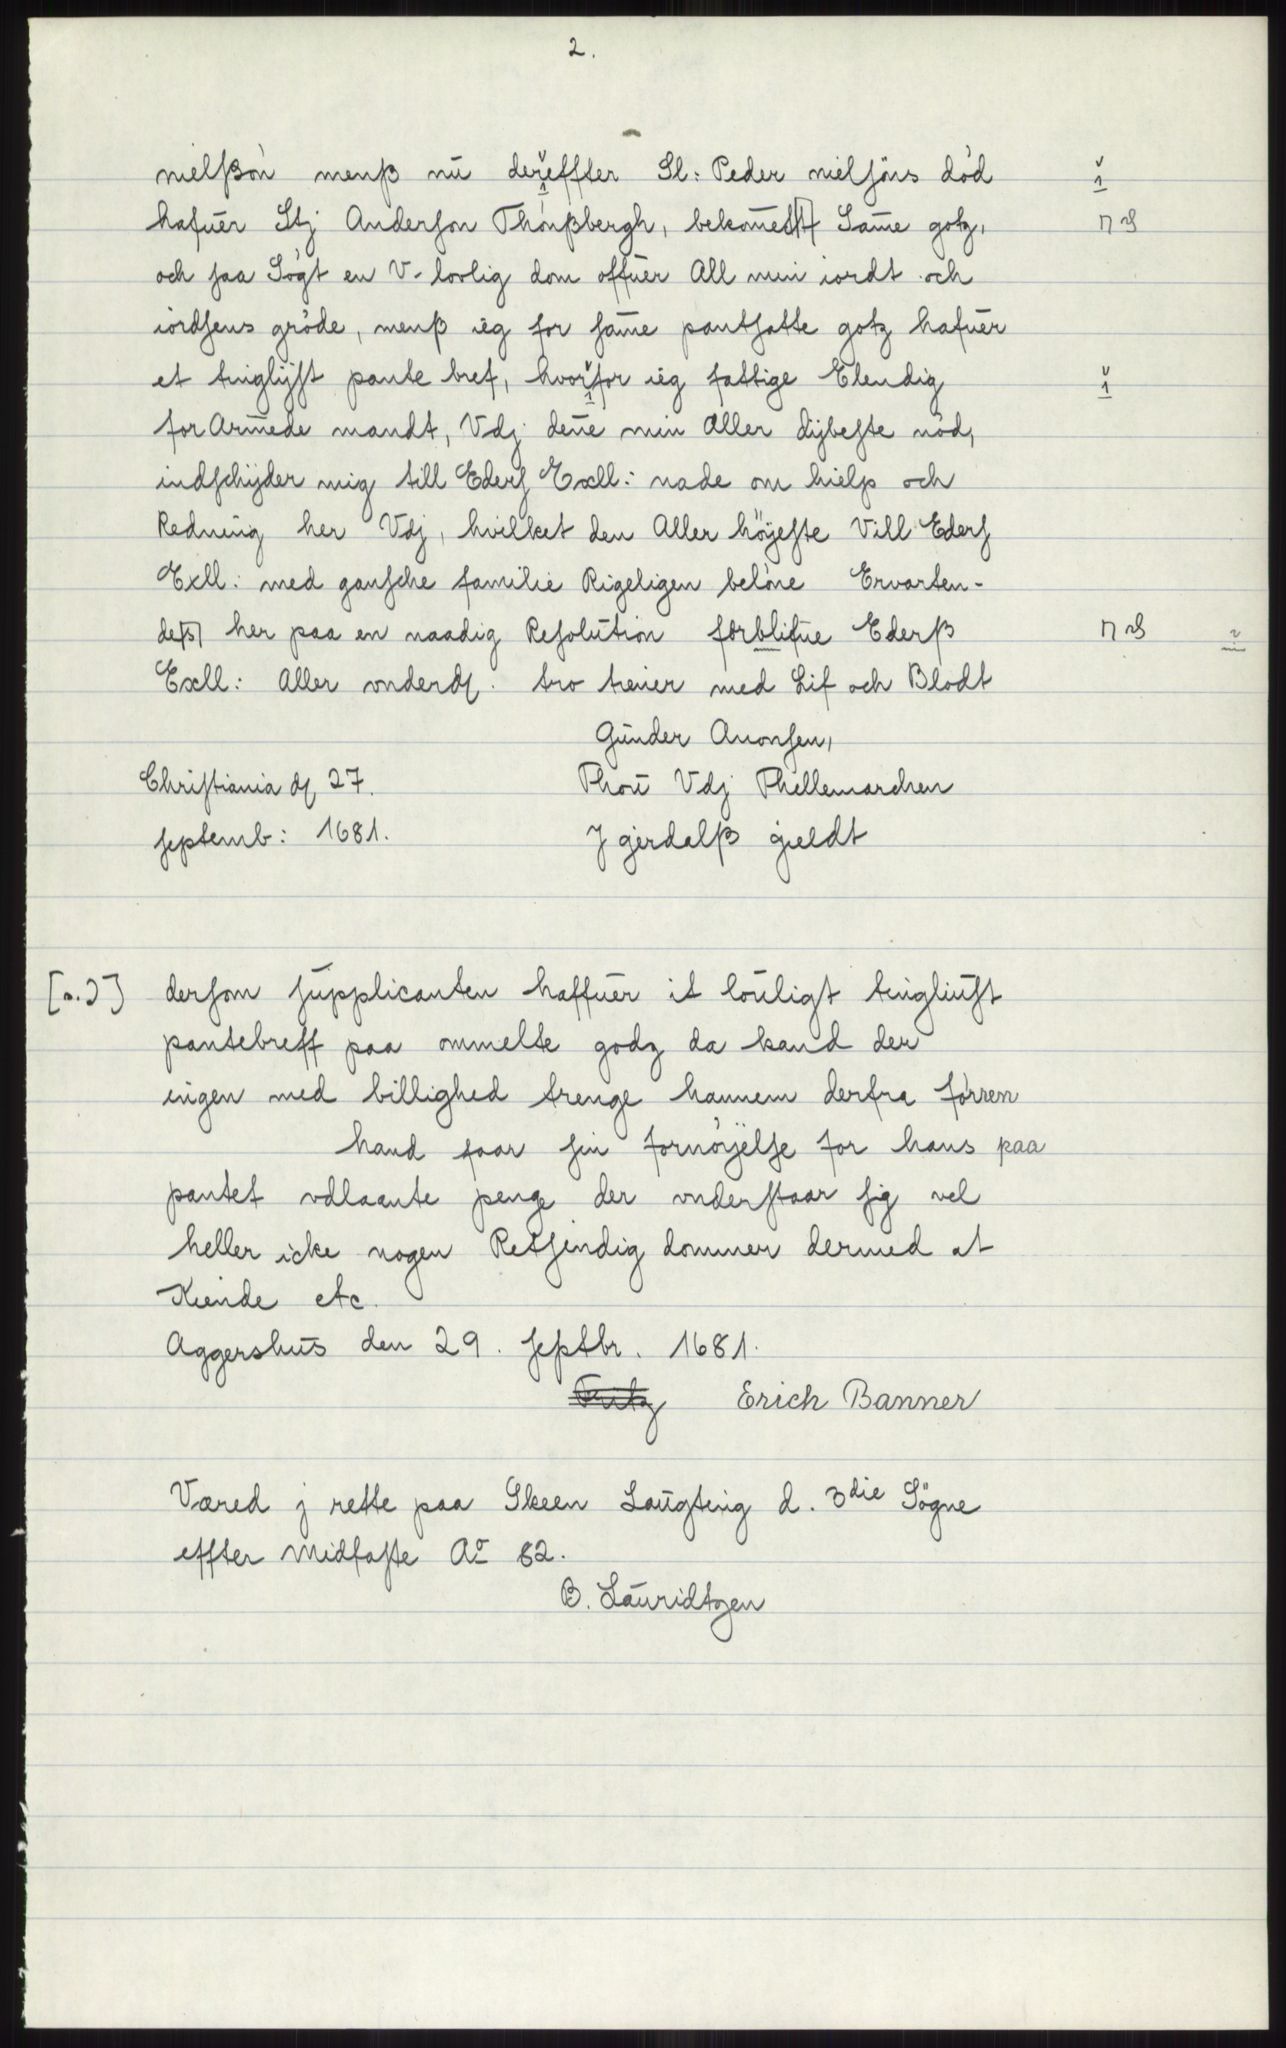 2.
nielßön menß nu dereffter Sl: Peder nielsøns död
hafuer Stj Anderson Thönßbergh, bekommett Samme gotz,
och saa Sögt en V-lovlig dom offuer All min iordt och
iordsens gröde, menß ieg for samme pantsatte gotz hafuer
et tinglÿst pante bref, hvorfor ieg fattige Elendig
for Armede mandt, Vdj denne min Aller dÿbeste nöd,
indschÿder mig till Eders Exll: nade om hielp och
Redning her Vdj, hvilket den Aller höÿeste Vill Eders
Exll: med gansche familie Rigeligen belöne Ervarten-
de[s] her paa en naadig Resolution forblifue Ederß
Exll: Aller onderd. tro tiener med Lif och Blodt
Gunder Auonsen,
Christiania d 27. Phou Vdj Thellemarchen
septemb: 1681. J gierdalß gieldt
[a.2] dersom supplicanten haffuer it louligt tingliust
pantebreff paa ommelte godz da kand der
ingen med billighed trenge hannem derfra förren
hand faar sin fornöÿelse for hans paa
pantet vdlaante penge der vnderstaar sig vel
heller icke nogen Retsindig dommer dermed at
Kiende etc.
Aggershus den 29. septbr. 1681.
Fritz Erich Banner
Væred j rette paa Skeen Laugting d. 3die Sögne
effter Midfaste Ao 82.
B. Lauridtzen